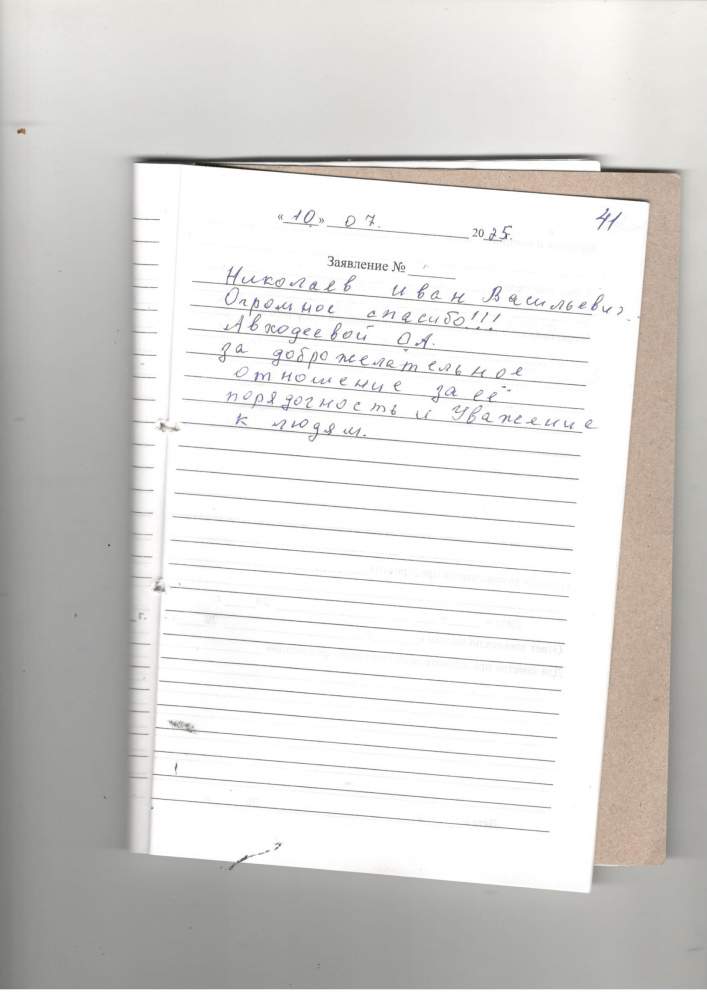 41
«10» 07. 2025.
Заявление №
Николаев Иван Васильевич.
Огромное спасибо!!!
Авходеевой О.А.
за доброжелательное
отношение за её
порядочность и Уважение
к людям.
г.